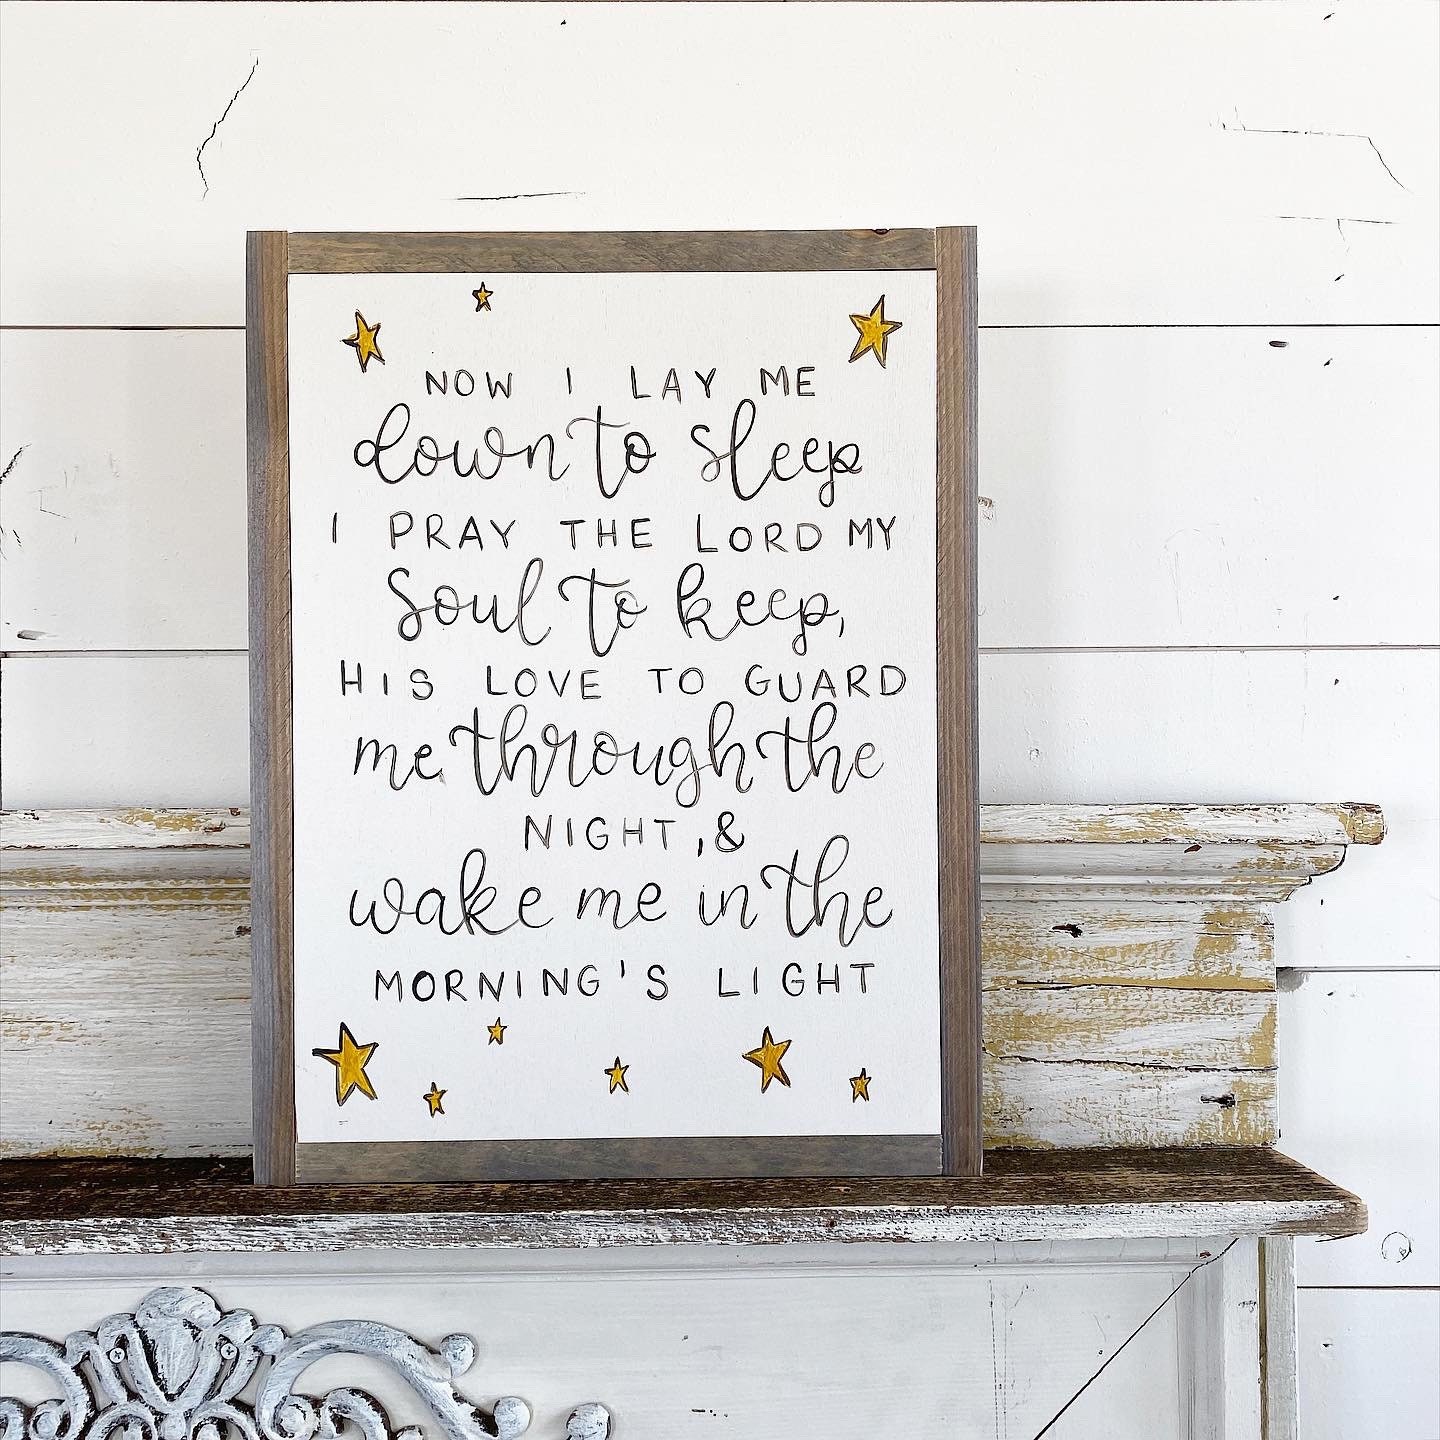 NOW I LAY ME
down to sleep
I PRAY THE LORD MY
Soul to keep,
HIS LOVE TO GUARD
me through the
NIGHT, &
wake me in the
MORNING'S LIGHT